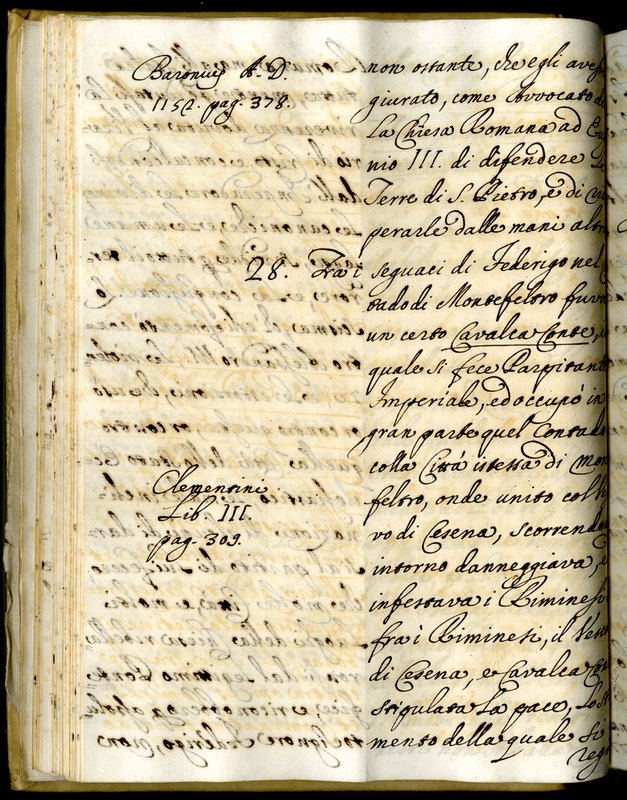 Baronius A. D.
1152. pag. 378.
non ostante, che egli avess
giurato, come Avvocato d
La Chiesa Romana ad Eu
nio III. di difendere Le
Terre di S. Pietro, e di ri
perarle dalle mani altr
28. Fra i seguaci di Federigo nel C
tado di Montefeltro fuvvi
un certo Cavalca Conte, il
quale si fece Partitante
Imperiale, ed occupò in
gran parte quel Contado
colla Città istessa di Mon
feltro, onde unito col Ve
vo di Cesena, scorrendo
intorno danneggiava, e
infestava i Riminesi
fra i Riminesi, il Vesc
di Cesena, e Cavalca Con
stipulata La pace, Lo st
mento della quale si
regi
Clementini
Lib. III.
pag. 309.